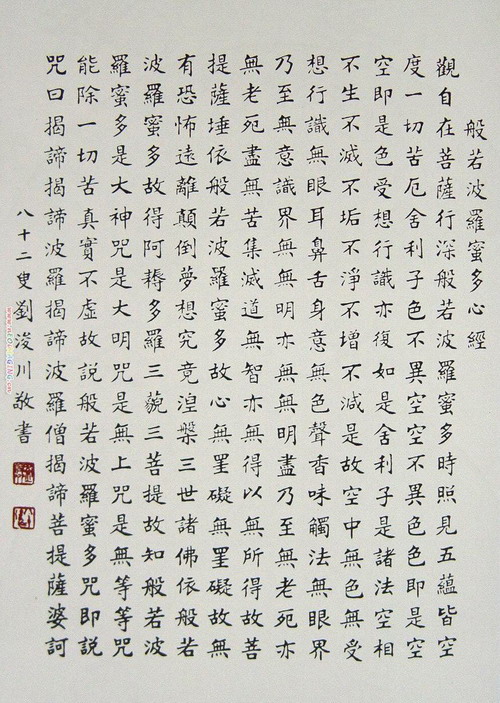 般若波羅蜜多心經
觀自在菩薩行深般若波羅蜜多時照見五蘊皆空
度一切苦厄舍利子色不異空空不異色色即是空
空即是色受想行識亦復如是舍利子是諸法空相
不生不滅不垢不淨不增不減是故空中無色無受
想行識無眼耳鼻舌身意無色聲香味觸法無眼界
乃至無意識界無無明亦無無明盡乃至無老死亦
無老死盡無苦集滅道無智亦無得以無所得故菩
提薩埵依般若波羅蜜多故心無罣礙無罣礙故無
有恐怖遠離顛倒夢想究竟涅槃三世諸佛依般若
波羅蜜多故得阿耨多羅三藐三菩提故知般若波
羅蜜多是大神咒是大明咒是無上咒是無等等咒
能除一切苦真實不虛故說般若波羅蜜多咒即說
咒曰揭諦揭諦波羅揭諦波羅僧揭諦菩提薩婆訶
八十二叟劉浚川敬書